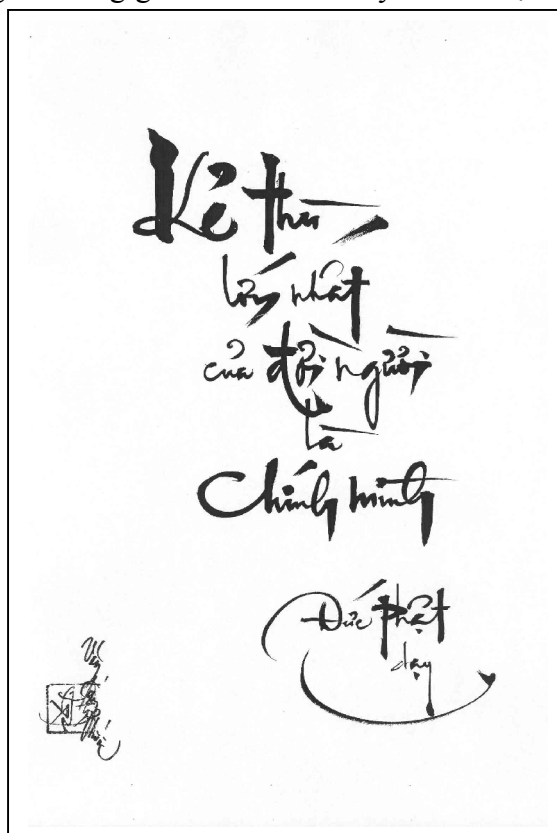 Kẻ thù
lớn nhất
của đời người
là
Chính mình
Đức Phật
dạy